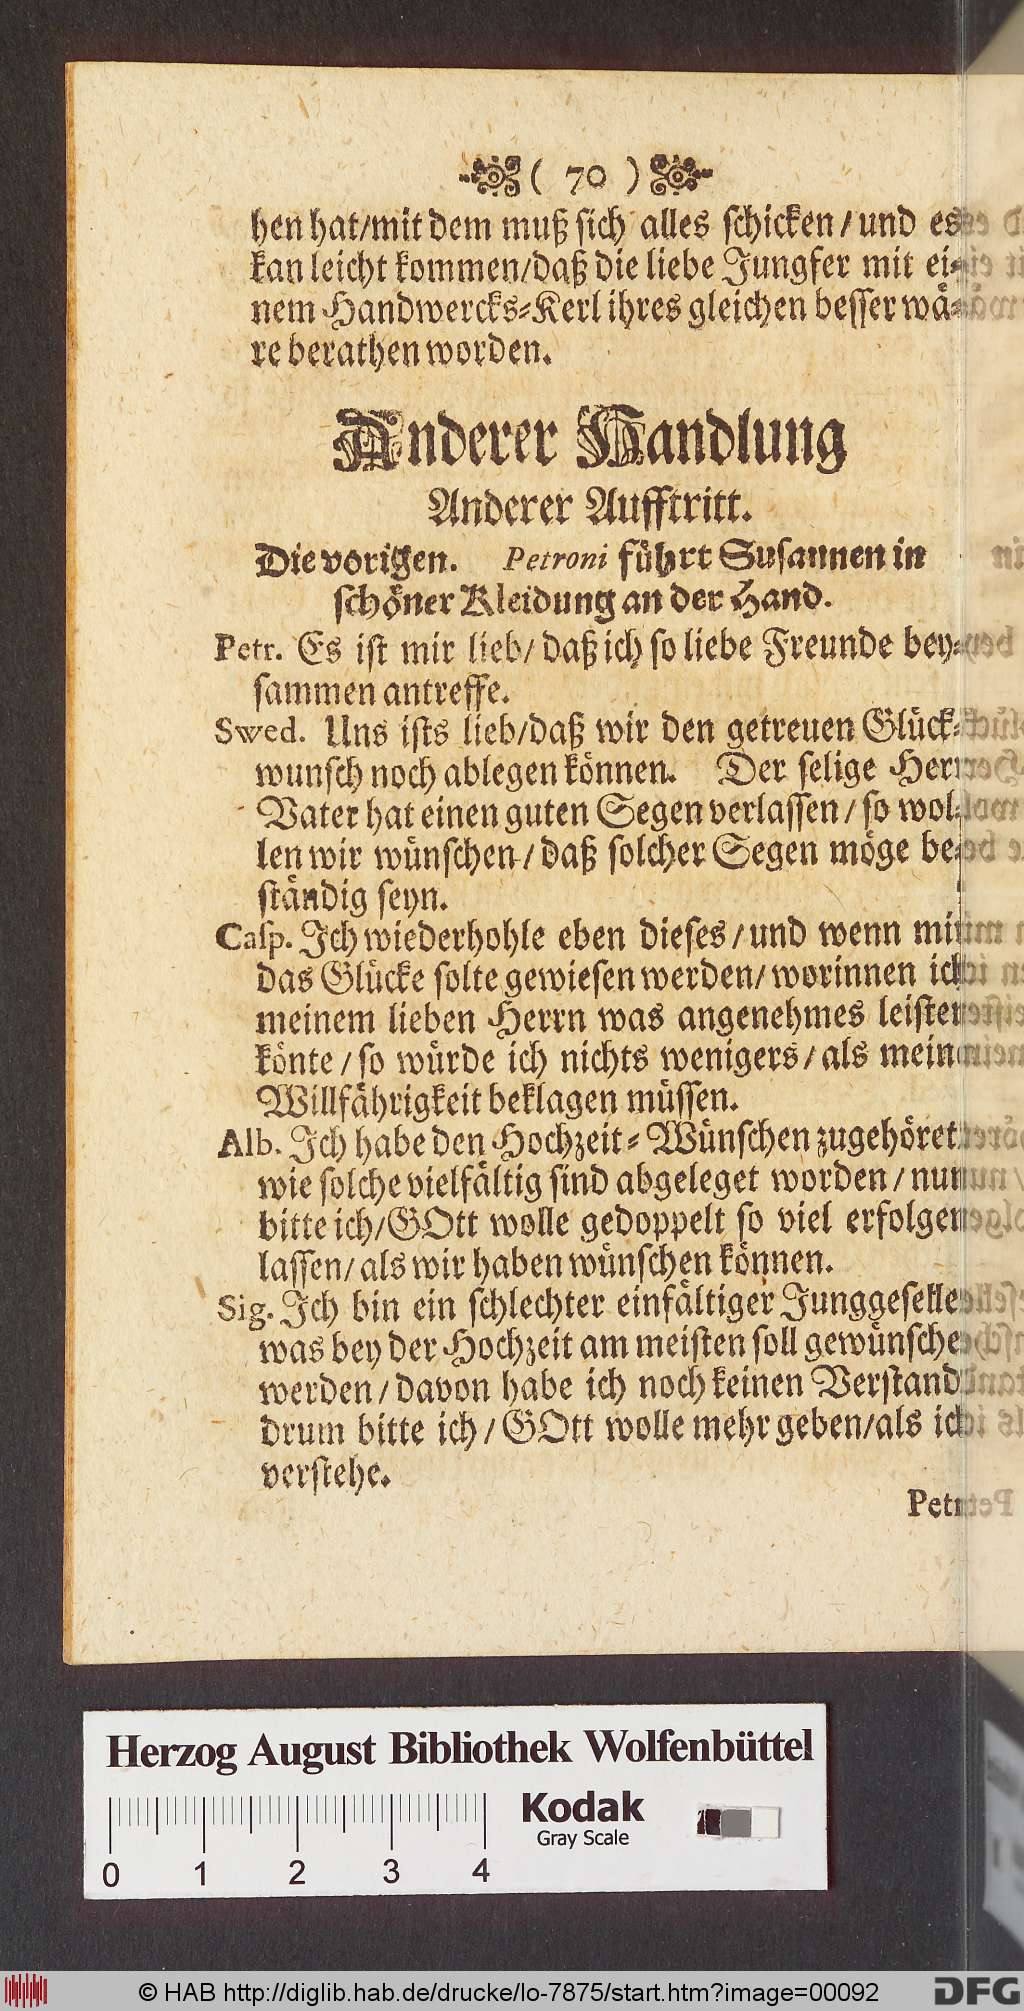 ( 70 )
hen hat/mit dem muß sich alles schicken/und es
kan leicht kommen/daß die liebe Jungfer mit ei-
nem Handwercks-Kerl ihres gleichen besser wä-
re berathen worden.
Anderer Handlung
Anderer Aufftritt.
Die vorigen. Petroni führt Susannen in
schöner Kleidung an der Hand.
Petr. Es ist mir lieb/ daß ich so liebe Freunde bey-
sammen antreffe.
Swed. Uns ists lieb/daß wir den getreuen Glück-
wunsch noch ablegen können. Der selige Herr
Vater hat einen guten Segen verlassen/ so wol-
len wir wünschen/ daß solcher Segen möge be-
ständig seyn.
Casp. Ich wiederhohle eben dieses/und wenn mir
das Glücke solte gewiesen werden/ worinnen ich
meinem lieben Herrn was angenehmes leisten
könte/so würde ich nichts wenigers/als meine
Willfährigkeit beklagen müssen.
Alb. Ich habe den Hochzeit-Wünschen zugehöret
wie solche vielfältig sind abgeleget worden/ nun
bitte ich/GOtt wolle gedoppelt so viel erfolgen
lassen/als wir haben wünschen können.
Sig. Ich bin ein schlechter einfältiger Junggeselle
was bey der Hochzeit am meisten soll gewünschet
werden/davon habe ich noch keinen Verstand
drum bitte ich/GOtt wolle mehr geben/als ich
verstehe.
Petr.
Herzog August Bibliothek Wolfenbüttel
Kodak
Gray Scale
0 1 2 3 4
© HAB http://diglib.hab.de/drucke/lo-7875/start.htm?image=00092
DFG